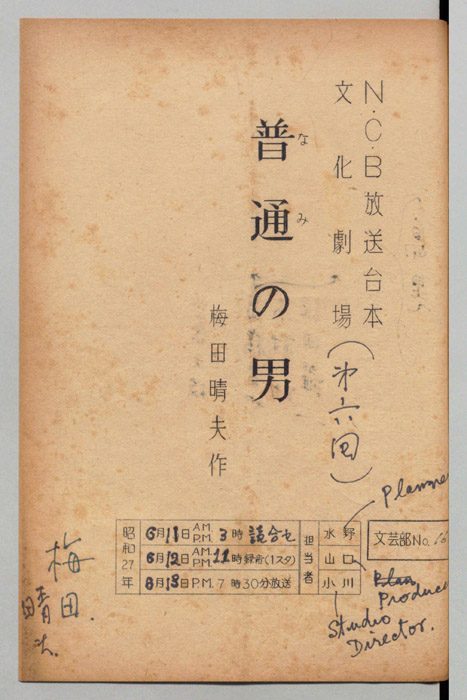 N・C・B放送台本
文化劇場(第六回)
普通の男
なみ
梅田晴夫作
Planne
文芸部No.
昭和27年
6月11日 A.M. P.M. 3時 読合せ
6月12日 A.M. P.M. 11時録音(1スタ)
6月13日 P.M. 7時30分放送
担当者
水野
山口
小川
Plan
Produce
Studio
Director.
梅田
晴